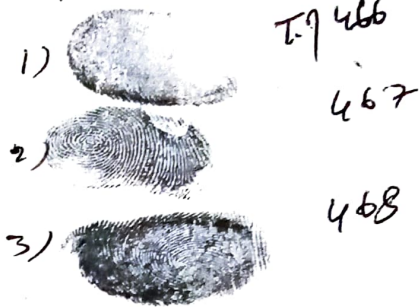 1) T.I 466
2) 467
3) 468